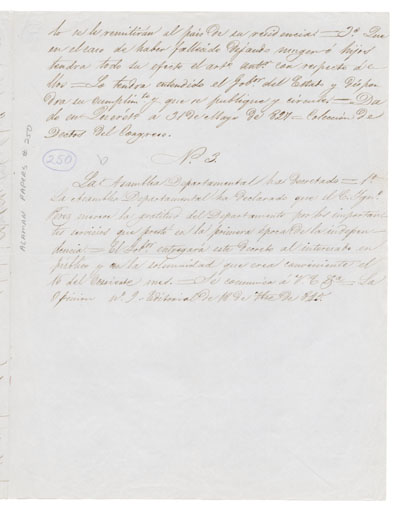 lo se le remitirán al pais de su residencia = 3º Que
en el caso de haber fallecido dejando muger ó hijos
tendra todo su efecto el artº antº con respecto á
ellos = Lo tendra entendido el Gobr. del Estado y dispon
dra su cumplimto y que se publique y circule = Da
do en Decreto á 31 de Mayo de 827 = Coleccion de
Dectos del Congreso.
250
Nº 3.
La Asamblea Departamental ha decretado = 1º
La asamblea Departamental ha declarado que el C. Ygnº
merece la gratitud del Departamento por los importan
tes servicios que prestó en la primera época de la indepen
dencia = El Gobº entregará este Decreto al interesado en
público y con la solemnidad que crea conveniente el
16 del corriente mes = Se comunica á V. E. &a = La
Opinion Nº 9 Editorial de 18 de de 845.
ALAMAN PAPERS # 250